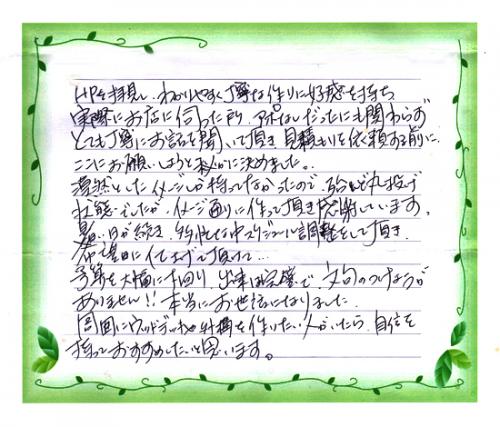 HPを拝見し、わかりやすく丁寧な作りに好感を持ち
実際にお店に伺った所、アポなしだったにも関わらず
とても丁寧にお話を聞いて頂き、見積もりを依頼する前に、
ここにお願いしようと密かに決めました。
漠然としたイメージしか持ってなかったので、殆ど丸投げ
状態でしたが、イメージ通りに作って頂き感謝しています。
暑い日が続き、多忙な中スケジュール調整をして頂き、
希望日に仕上げて頂けて…
予算を大幅に下回り、出来は完璧で、文句のつけようが
ありません!! 本当にお世話になりました。
周囲にウッドデッキや外構を作りたい人がいたら、自信を
持っておすすめしたいと思います。